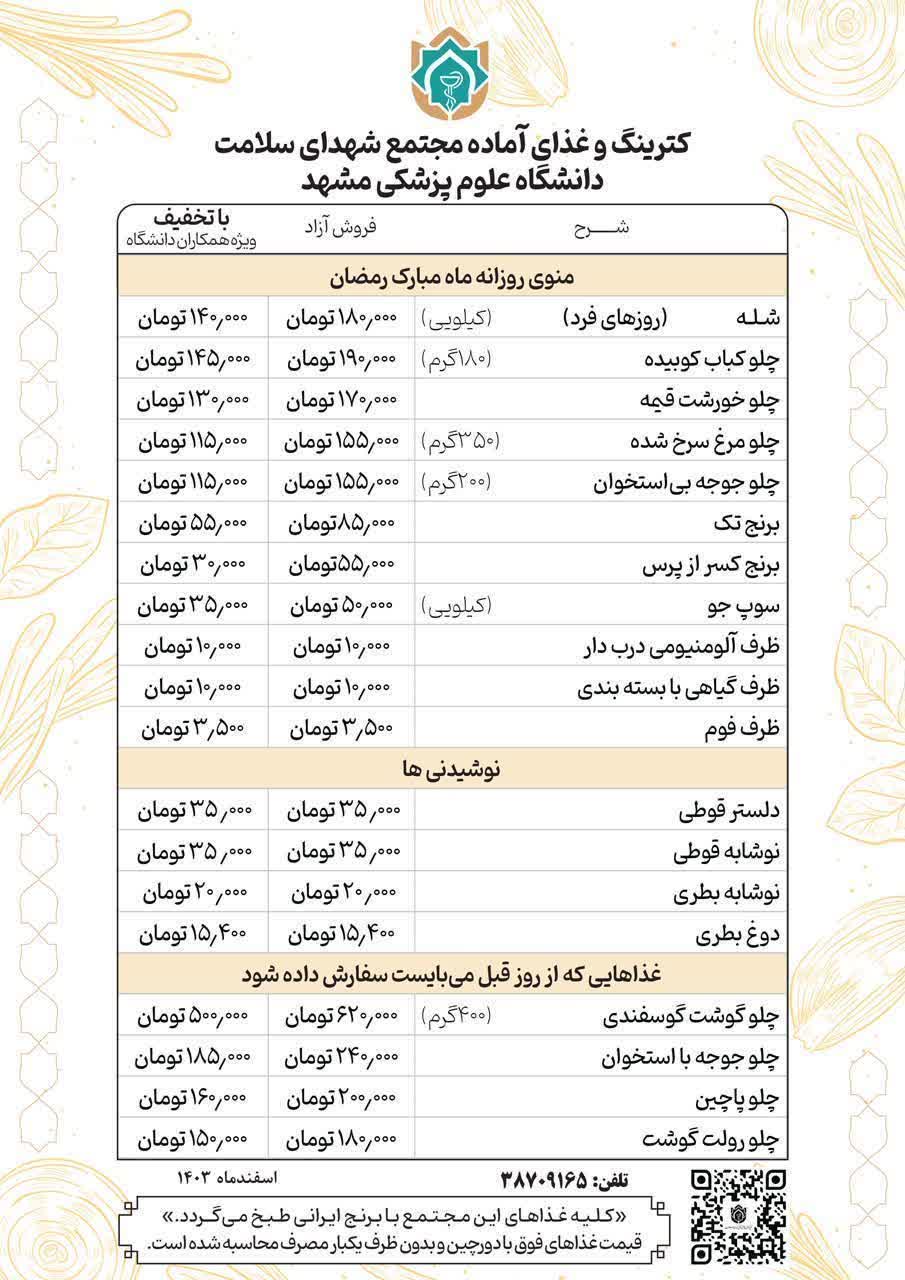 کترینگ و غذای آماده مجتمع شهدای سلامت
دانشگاه علوم پزشکی مشهد
شـــرح فروش آزاد با تخفیف
ویژه همکاران دانشگاه
منوی روزانه ماه مبارک رمضان
شـلـه (روزهای فرد) (کیلویی) ۱۸۰٫۰۰۰ تومان ۱۴۰٫۰۰۰ تومان
چلو کباب کوبیده (۱۸۰گرم) ۱۹۰٫۰۰۰ تومان ۱۴۵٫۰۰۰ تومان
چلو خورشت قیمه ۱۷۰٫۰۰۰ تومان ۱۳۰٫۰۰۰ تومان
چلو مرغ سرخ شده (۳۵۰گرم) ۱۵۵٫۰۰۰ تومان ۱۱۵٫۰۰۰ تومان
چلو جوجه بی‌استخوان (۲۰۰گرم) ۱۵۵٫۰۰۰ تومان ۱۱۵٫۰۰۰ تومان
برنج تک ۸۵٫۰۰۰تومان ۵۵٫۰۰۰ تومان
برنج کسر از پرس ۵۵٫۰۰۰تومان ۳۰٫۰۰۰ تومان
سوپ جو (کیلویی) ۵۰٫۰۰۰ تومان ۳۵٫۰۰۰ تومان
ظرف آلومنیومی درب دار ۱۰٫۰۰۰ تومان ۱۰٫۰۰۰ تومان
ظرف گیاهی با بسته بندی ۱۰٫۰۰۰ تومان ۱۰٫۰۰۰ تومان
ظرف فوم ۳٫۵۰۰ تومان ۳٫۵۰۰ تومان
نوشیدنی ها
دلستر قوطی ۳۵٫۰۰۰ تومان ۳۵٫۰۰۰ تومان
نوشابه قوطی ۳۵٫۰۰۰ تومان ۳۵٫۰۰۰ تومان
نوشابه بطری ۲۰٫۰۰۰ تومان ۲۰٫۰۰۰ تومان
دوغ بطری ۱۵٫۴۰۰ تومان ۱۵٫۴۰۰ تومان
غذاهایی که از روز قبل می‌بایست سفارش داده شود
چلو گوشت گوسفندی (۴۰۰گرم) ۶۲۰٫۰۰۰ تومان ۵۰۰٫۰۰۰ تومان
چلو جوجه با استخوان ۲۴۰٫۰۰۰ تومان ۱۸۵٫۰۰۰ تومان
چلو پاچین ۲۰۰٫۰۰۰ تومان ۱۶۰٫۰۰۰ تومان
چلو رولت گوشت ۱۸۰٫۰۰۰ تومان ۱۵۰٫۰۰۰ تومان
تلفن: ۳۸۷۰۹۱۶۵ اسفندماه ۱۴۰۳
«کلیه غذاهای این مجتمع با برنج ایرانی طبخ می‌گردد.»
قیمت غذاهای فوق با دورچین و بدون ظرف یکبار مصرف محاسبه شده است.